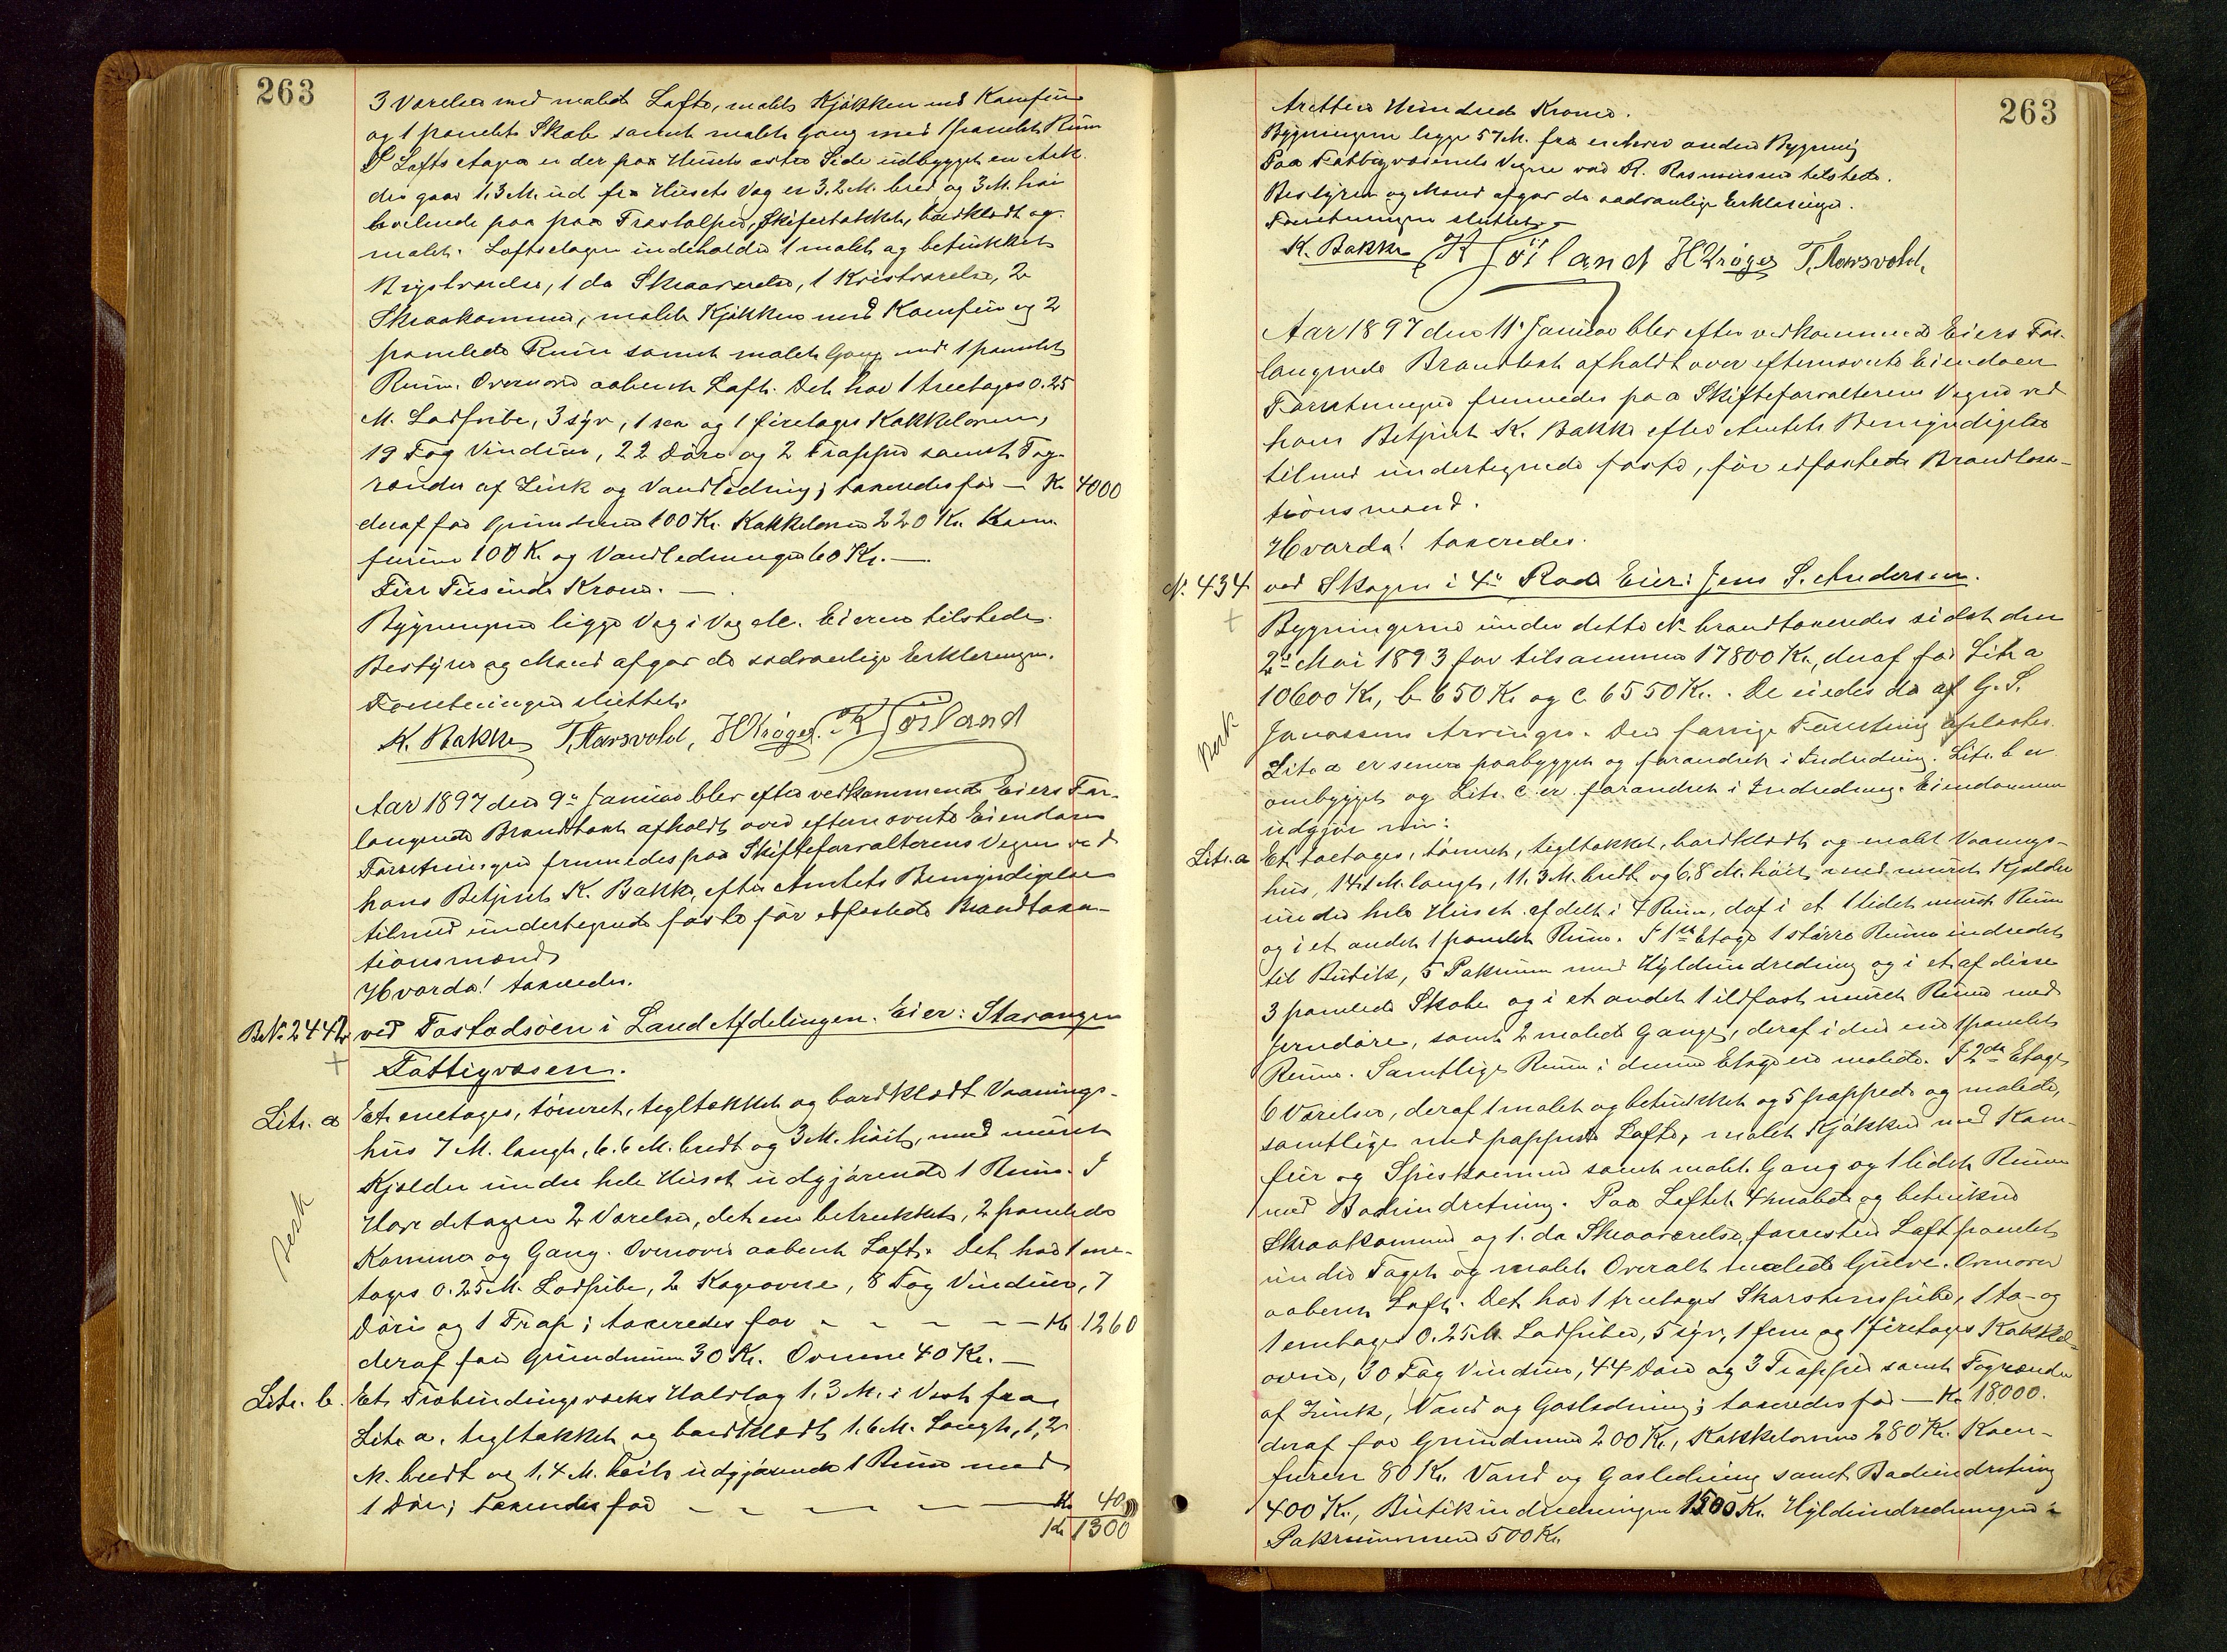 263
3 Værelser med malede Lofte, malet Kjøkken med Komfur
og 1 panelet Skab samt malet Gang med 1 panelet Rum
I Loftsetagen er der paa Husets østre Side udbygget en Ark
der gaar 1.3 M. ud fra Husets Væg er 3.2 M. bred og 3 M. høi
hvilende paa paa Træstolper, skifertækket, bordklædt og
malet. Loftsetagen indeholder 1 malet og betrukket
Kvistværelse, 1 do Skraaværelse, 1 Kvistværelse, 2
Skraakammere, malet Kjøkken med Komfur og 2
panelede Rum samt malet Gang med 1 panelet
Rum. Ovenover aabent Loft. Det har 1 treetages 0.25
M. Lodpibe, 3 syv, 1 sex og 1 fireetages Kakkelovne,
19 Fag Vinduer, 22 Døre og 2 Trapper samt Tag-
render af Zink og Vandledning; taxeredes for — Kr 4000
deraf for Grundmur 100 Kr. Kakkelovne 220 Kr. Kom-
furene 100 Kr og Vandledningen 60 Kr. —
Fire Tusinde Kroner. —
Bygningen ligge Væg i Væg M. Eieren tilstede.
Bestyrer og Mænd afgav de sædvanlige Erklæringer.
Forretningen sluttet.
K. Bakke T. Aarsvold, H Krøger. K Joïland
Aar 1897 den 9de Januar blev efter vedkommende Eiers For-
langende Brandtaxt afholdt over efternævnte Eiendom
Forretningen fremmedes paa Skifteforvalterens Vegne ved
hans Betjent K. Bakke, efter Amtets Bemyndigelse
tilmed undertegnede faste før edfæstede Brandtaxa-
tionsmænd,
Hvorda! taxeredes.
B.No. 244 b ved Tastadsøen i Land Afdelingen. Eier: Stavanger
Fattigvæsen.
Litr. a Et enetages, tømret, tegltækket og bordklædt Vaanings-
hus 7 M. langt, 6.6 M. bredt og 3 M. høit, med muret
Kjelder under hele Huset udgjørende 1 Rum. I
Hovedetagen 2 Værelser, det ene betrukket, 2 panelede
Kammer og Gang. Ovenover aabent Loft. Det har 1 ene-
tages 0.25 M. Lodpibe, 2 Kogeovne, 8 Fag Vinduer, 7
Døre og 1 Trap; taxeredes for - - - - — Kr 1260
deraf for Grundmur 30 Kr. Ovnene 40 Kr. —
Besk
Litr. b. Et Træbindingsværks Halvtag 1.3 M. i Vest fra
Litr a. tegltækket og bordklædt 1.6 M. Langt, 1,2
M. bredt og 1.4 M. høit udgjørende 1 Rum med
1 Dør; taxeredes for - - - - — Kr 40
Kr 1300
263
Atretten Hundrede Kroner.
Bygningerne ligge 57 M. fra enhver anden Bygning
Paa Fattigvæsenets Vegne var R. Rasmussen tilstede.
Bestyrer og Mænd afgav de sædvanlige Erklæringer.
Forretningen sluttet. -
K. Bakke K Joïland H Krøger T. Aarsvold,
Aar 1897 den 11te Januar blev efter vedkommende Eiers For-
langende Brandtaxt afholdt over efternævnte Eiendom
Forretningen fremmedes paa Skifteforvalterens Vegne ved
hans Betjent K. Bakke efter Amtets Bemyndigelse
tilmed undertegnede faste, før edfæstede Brandtaxa-
tionsmænd.
Hvorda! taxeredes.
No. 434 ved Skagen i 4de Rode Eier: Jens S. Andersen.
Bygningerne under dette No brandtaxeredes sidst den
2den Mai 1893 for tilsammen 17800 Kr, deraf for Litr a
10600 Kr, b 650 Kr og c 6550 Kr. De eiedes da af G. S.
Jonassens Arvinger. Den forrige Forretning oplæstes.
Besk
Litr a er senere paabygget og forandret i Indredning. Litr. b er
ombygget og Litr. c. er forandret i Indredning. Eiendommen
udgjør nu:
Litr. a Et toetages, tømret, tegltækket, bordklædt og malet Vaanings-
hus, 14.1 M. langt, 11.3 M. bredt og 6.8 M. høit, med muret Kjelder
under hele Huset afdelt i 4 Rum, deraf i et 1 lidet muret Rum
og i et andet 1 panelet Rum. I 1ste Etage 1 større Rum indredet
til Butik, 5 Pakrum med Hyldeindredning og i et af disse
3 panelede Skabe og i et andet 1 ildfast muret Rum med
Jerndøre, samt 2 malede Gange, deraf i den ene 1 panelet
Rum. Samtlige Rum i denne Etage ere malede. I 2den Etage
6 Værelser, deraf 1 malet og betrukket og 5 pappede og malede,
samtlige med pappede Lofte, malet Kjøkken med Kom-
fur og Spiskammer samt malet Gang og 1 lidet Rum
med Badeindretning. Paa Loftet 4 malede og betrukne
Skraakammer og 1 do Skraaværelse, forresten Loft panelet
under Taget og malet. Overalt malede Gulve. Ovenover
aabent Loft. Det har 1 treetages Skorstenspibe, 1 to- og
1 enetages 0.25 M. Lodpiber, 5 syv, 1 fem og 1 fireetages Kakkel-
ovne, 30 Fag Vinduer, 44 Døre og 3 Trapper samt Tagrender
af Zink, Vand og Gasledning; taxeredes for — Kr 18000.
deraf for Grundmur 200 Kr, Kakkelovne 280 Kr. Kom-
furen 80 Kr. Vand og Gasledning samt Badeindretning
400 Kr, Butikindredningen 1500 Kr. Hyldeindredningen i
Pakrummene 500 Kr.